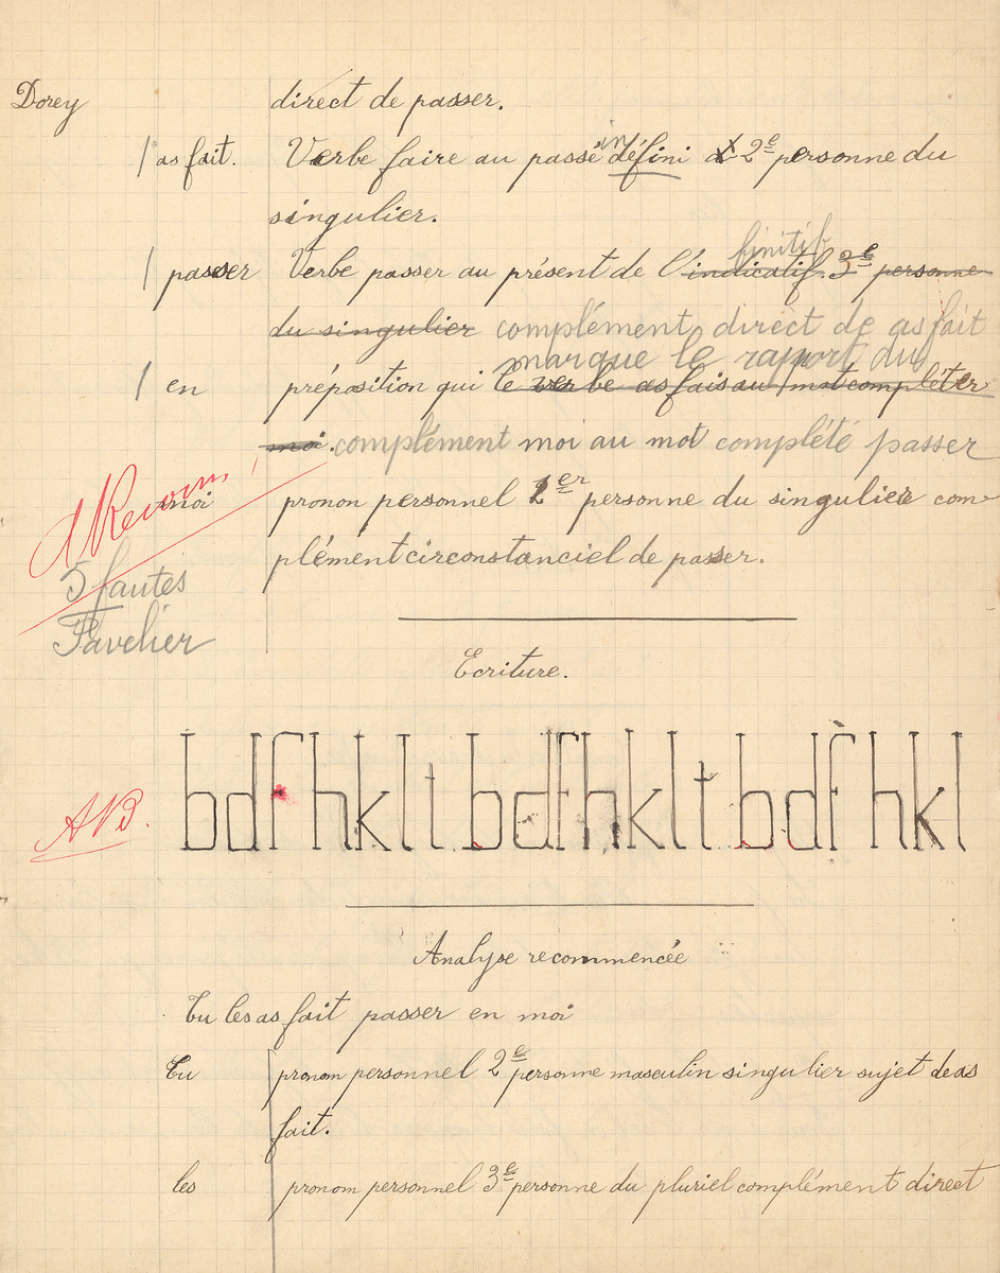 Dorey direct de passer.
/ as fait. Verbe faire au passé indéfini à 2e personne du
singulier.
finitif
/ passer Verbe passer au présent de l'indicatif. 3e personne
du singulier complément direct de as fait
marque le rapport du
/ en préposition qui le verbe as fais au mot compléter
moi. complément moi au mot complété passer
moi pronon personnel 1er personne du singulier com-
plément circonstanciel de passer.
5 fautes
Ecriture.
bdfhklt bdfhklt bdfhkl
Analyse recommencée
Tu les as fait passer en moi
Tu pronom personnel 2e personne masculin singulier sujet de as
fait.
les pronom personnel 3e personne du pluriel complément direct